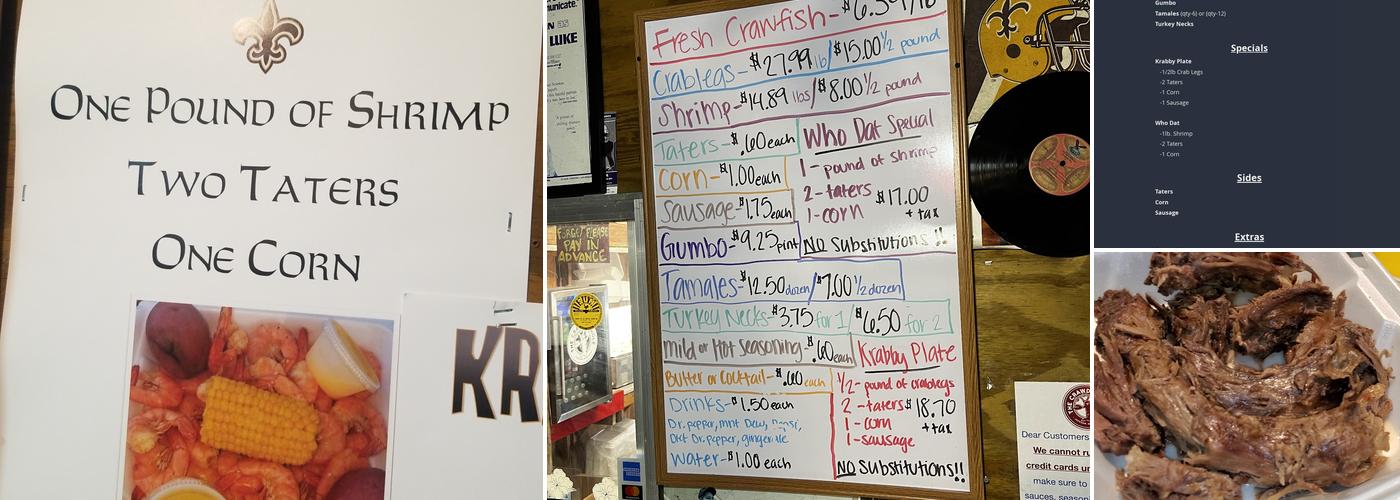 ONE POUND OF SHRIMP
TWO TATERS
ONE CORN
KR
LUKE
FORGET PLEASE
PAY IN
ADVANCE
Fresh Crawfish-
Crablegs-$27.99 lb/$15.00 ½ pound
Shrimp-$14.89 lbs/$8.00 ½ pound
Taters-$.60 each
Corn-$1.00 each
Sausage-$1.75 each
Gumbo-$9.25 pint
Who Dat Special
1-pound of shrimp
2-taters
1-corn
$17.00
+ tax
No Substitutions!!
Tamales-$12.50 dozen/$7.00 ½ dozen
Turkey Necks-$3.75 for 1/$6.50 for 2
mild or Hot Seasoning-$.60 each
Butter or Cocktail-$.60 each
Drinks-$1.50 each
Dr. pepper, mnt Dew,
Diet Dr. pepper, gingerale
Water-$1.00 each
Krabby Plate
1/2-pound of crablegs
2-taters
1-corn
1-sausage
$18.70
+ tax
No Substitutions!!
Dear Customers
We cannot
credit cards
make sure to
sauces,
Gumbo
Tamales (qty-6) or (qty-12)
Turkey Necks
Specials
Krabby Plate
-1/2lb Crab Legs
-2 Taters
-1 Corn
-1 Sausage
Who Dat
-1lb. Shrimp
-2 Taters
-1 Corn
Sides
Taters
Corn
Sausage
Extras